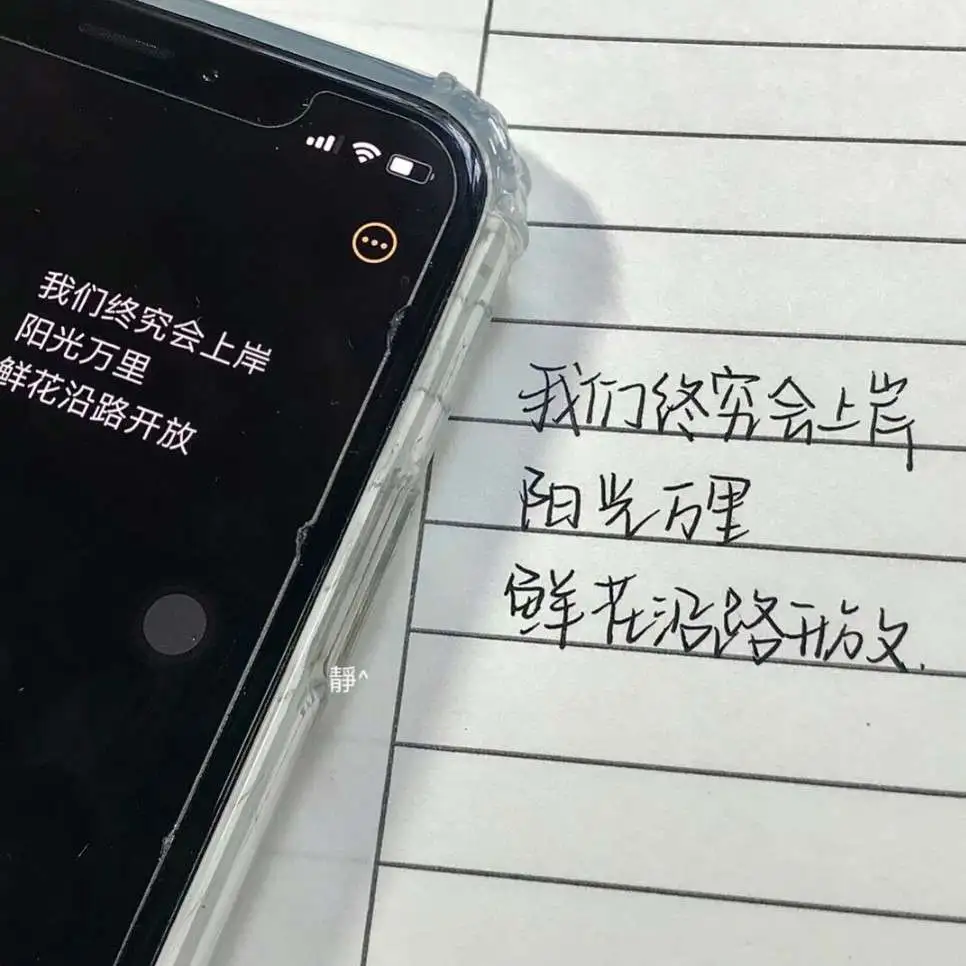 我们终究会上岸
阳光万里
鲜花沿路开放
我们终究会上岸
阳光万里
鲜花沿路开放.
靜^